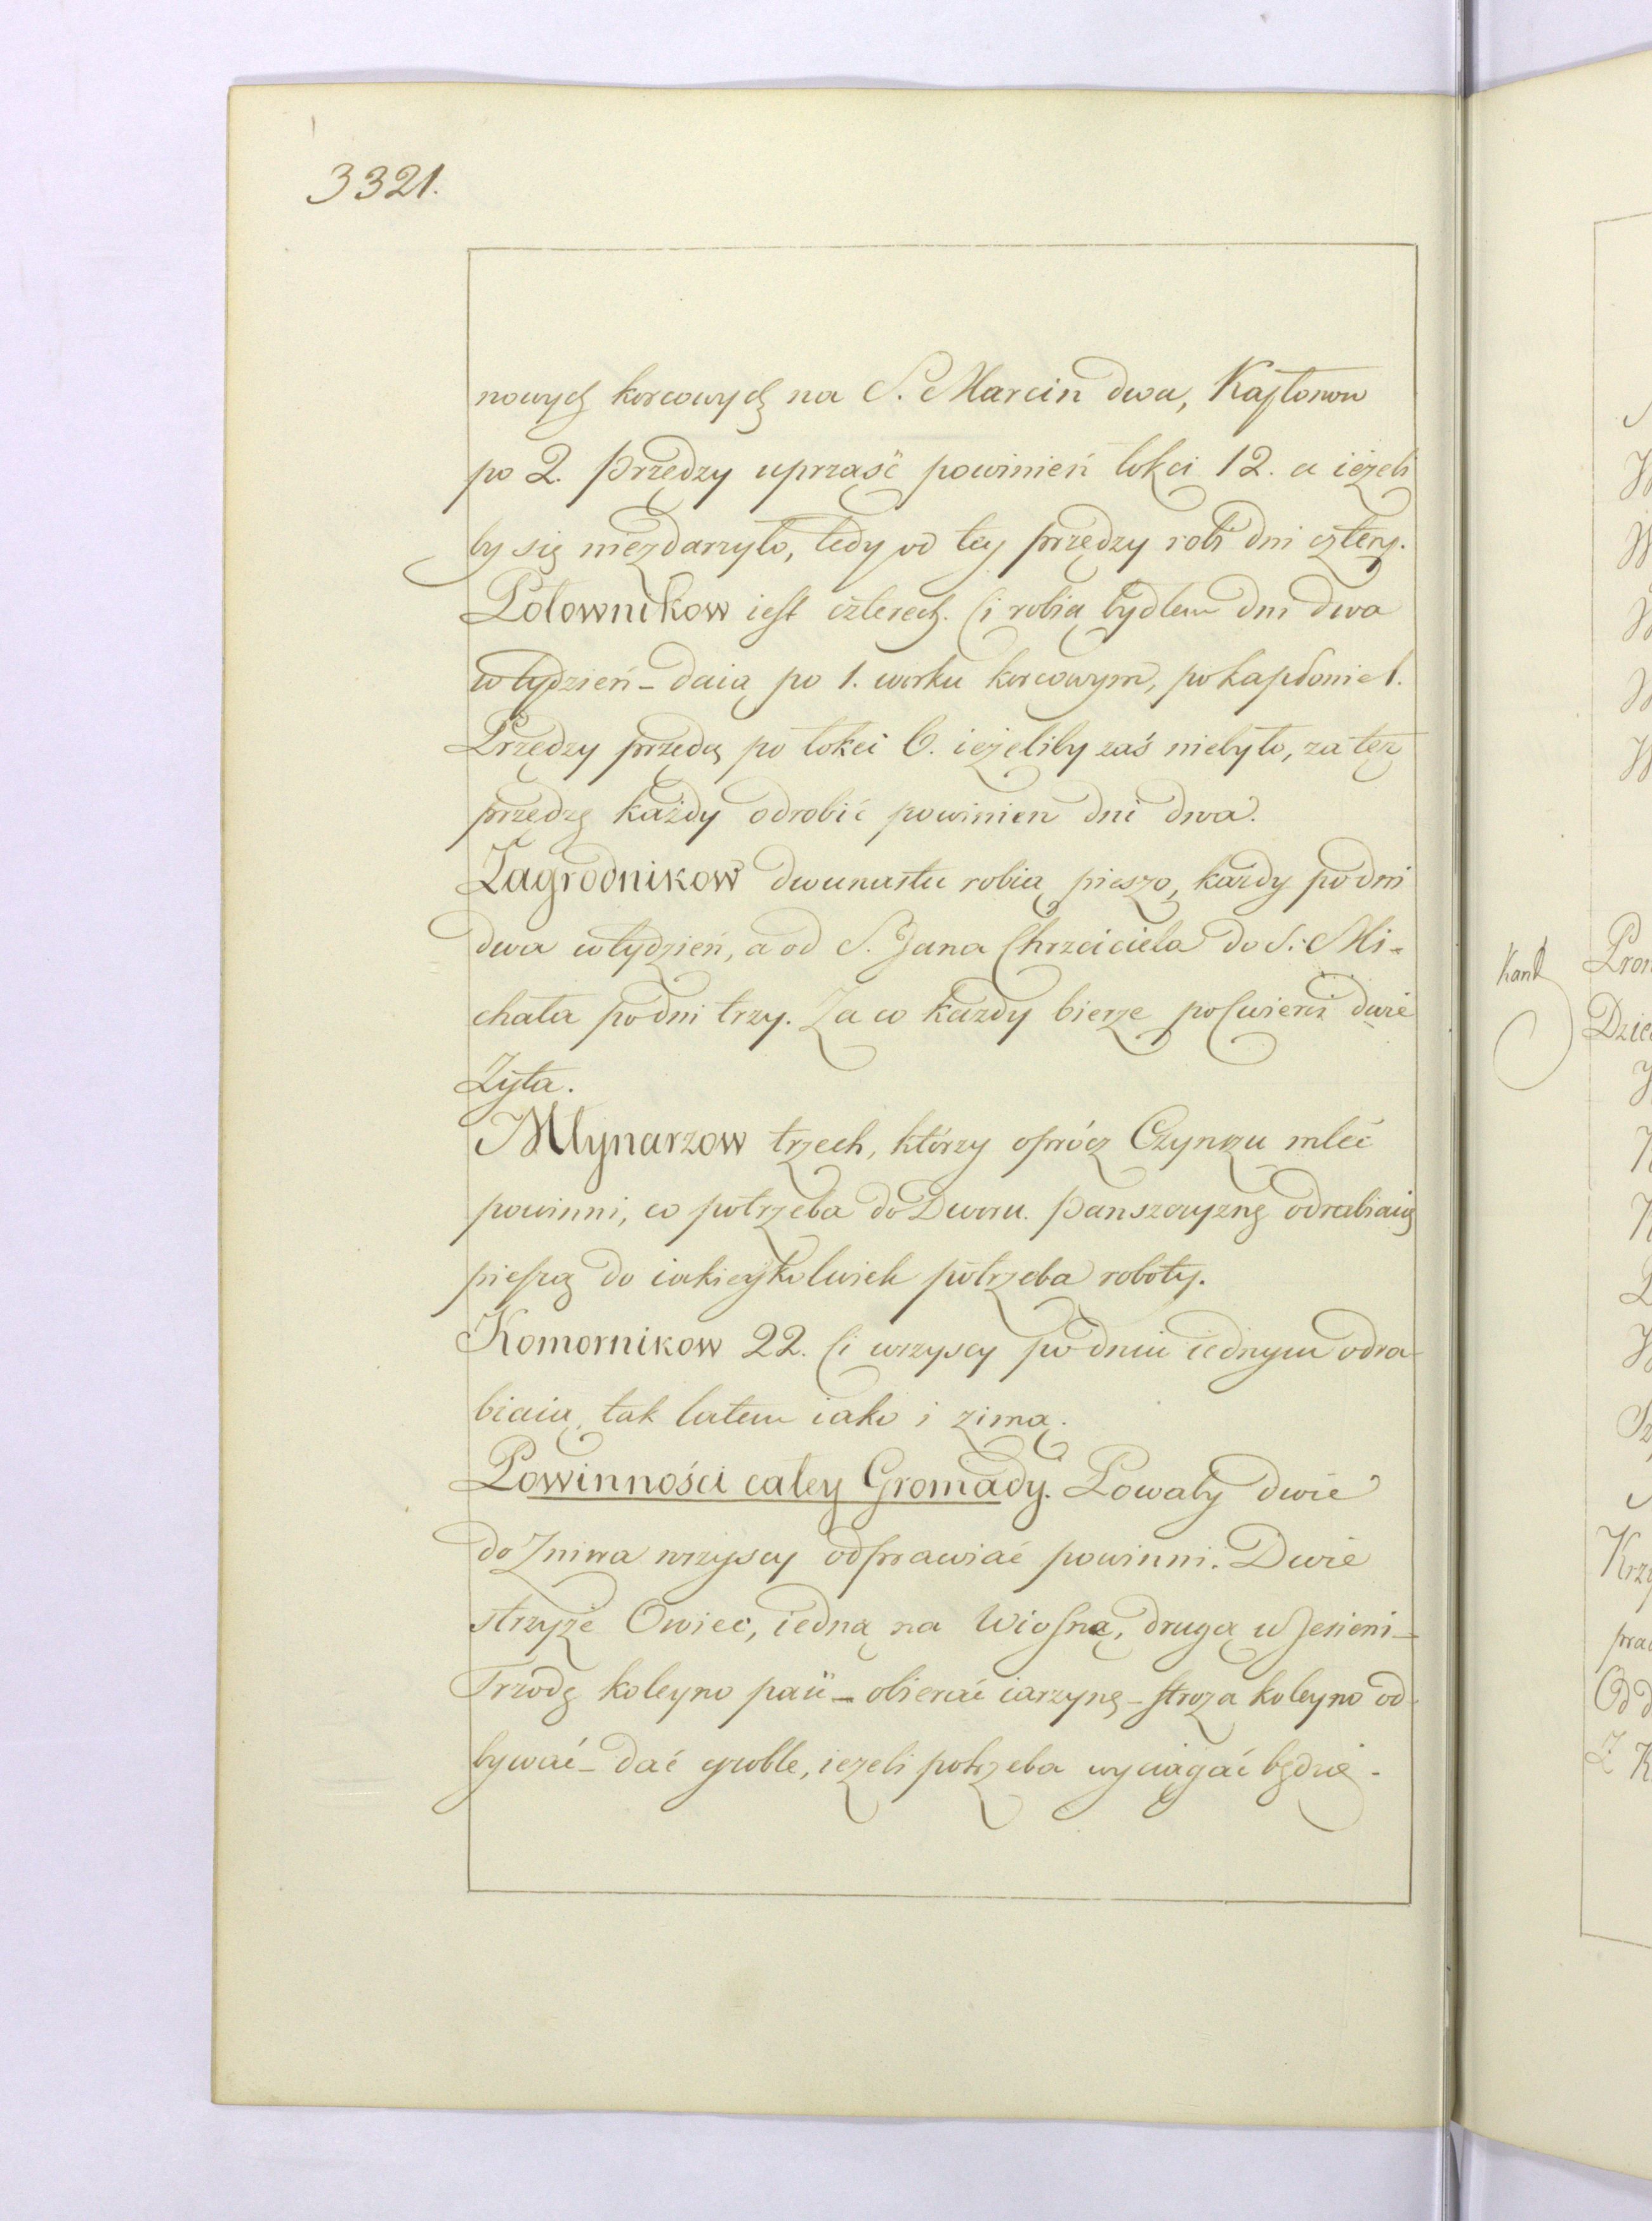 3321.
nowych korcowych na S. Marcin dwa, Kapłonow
po 2. Przędzy uprząść powinień łokci 12. a ieżeli
by się niezdarzyło, tedy od tey przędzy robi dni cztery.
Połownikow iest czterech. Ci robią bydłem dni dwa
w tydzień – daią po 1. worku korcowym, po kapłonie 1.
Przędzy przędą po łokci 6. ieżeliby zaś niebyło, za tęż
przędzę każdy odrobić powinien dni dwa.
Zagrodnikow dwunastu robią pieszo, każdy po dni
dwa w tydzień, a od S. Jana Chrzciciela do S. Mi-
chała po dni trzy. Za co każdy bierze po Cwierci dwie
Żyta.
Młynarzow trzech, którzy oprócz Czynszu mleć
powinni, co potrzeba do Dworu. Panszczyznę odrabiaią
pieszą do iakieykolwiek potrzeba roboty.
Komornikow 22. Ci wszyscy po dniu iednym odra-
biaią tak latem iako i zimą.
Powinności całey Gromady. Powaby dwie
do Żniwa wszyscy odprawiać powinni. Dwie
strzyże Owiec, iedną na Wiosnę, drugą w Jesieni –
Trzodę koleyno paść – obierać iarzynę – stroża koleyno od-
bywać – dać groble, ieżeli potrzeba wyciągać będzie.
Kant